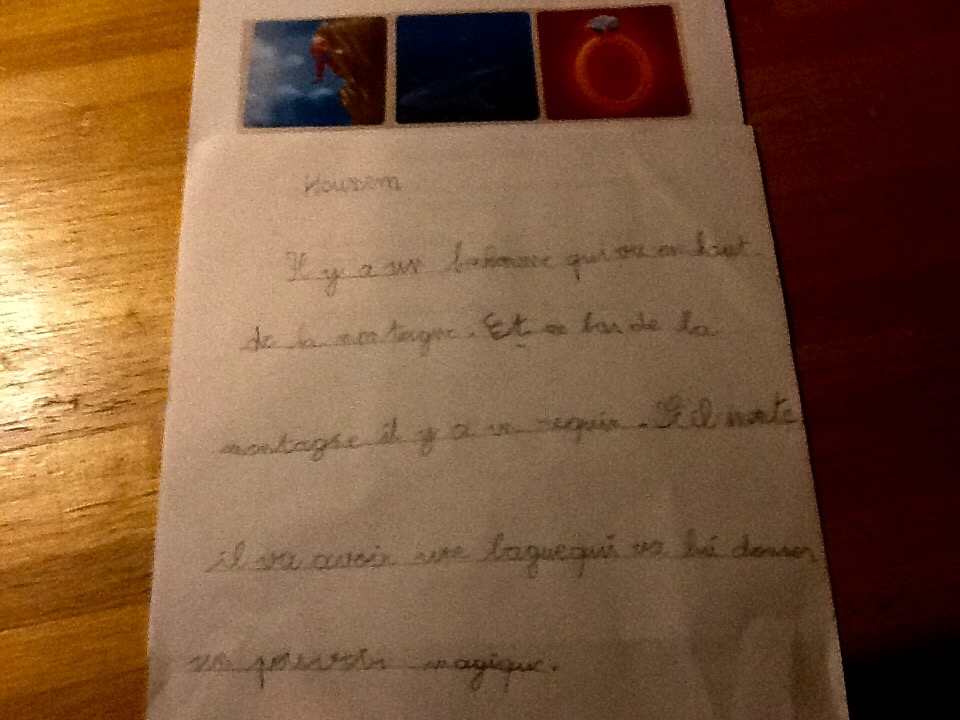 Housem
Il y a un bohomme qui va en haut
de la montagne. Et en bas de la
montagne il y a un requin. Si il monte
il va avoir une bague qui va lui donner
un pouvoir magique.